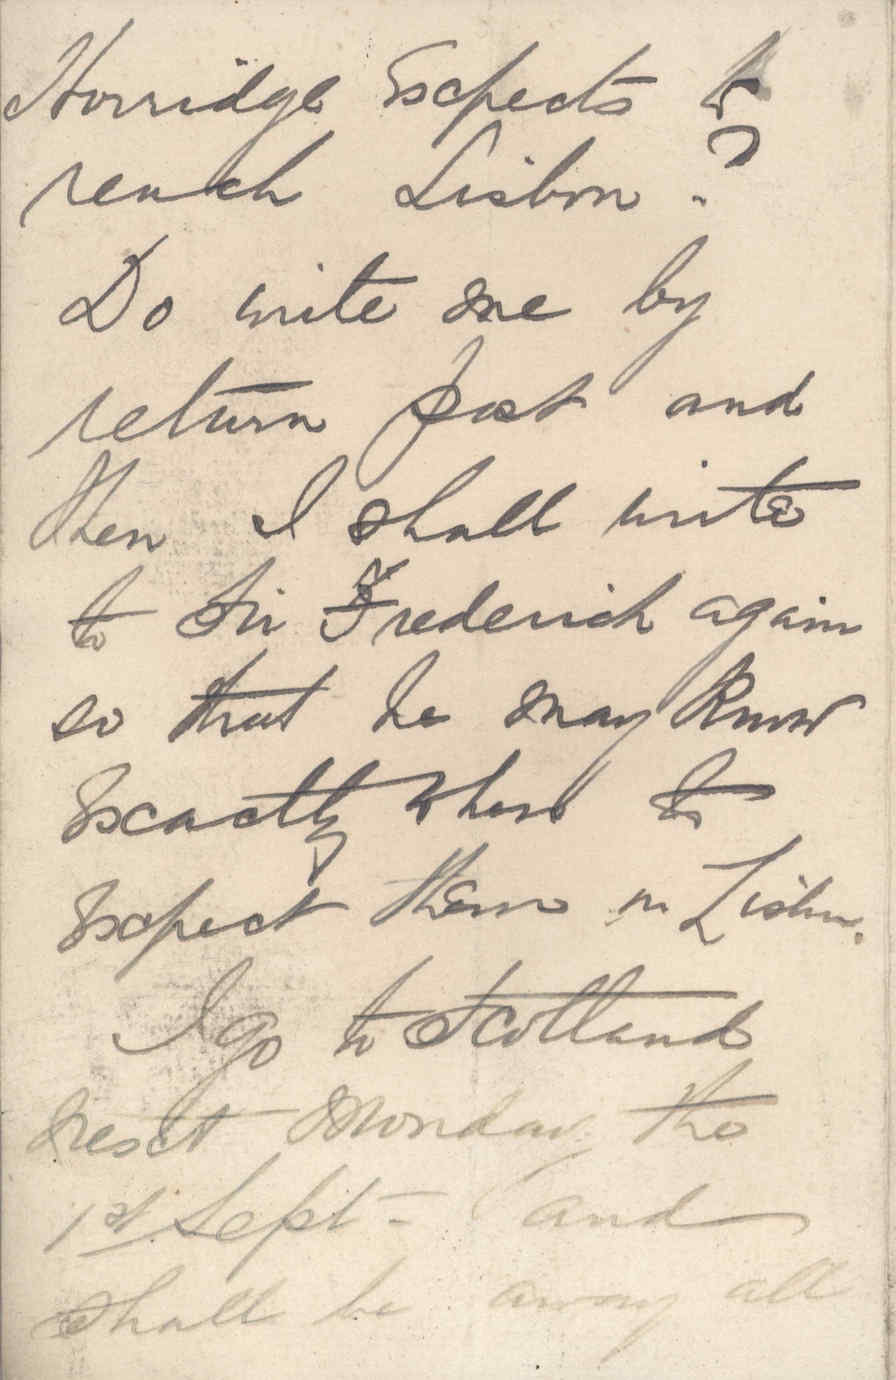 Horridge Expects to
reach Lisbon?
Do write me by
return post and
then I shall write
to Sir Frederick again
so that he may know
Exactly when to
Expect them in Lisbon.
I go to Scotland
next Monday the
1st Sept - and
shall be away all